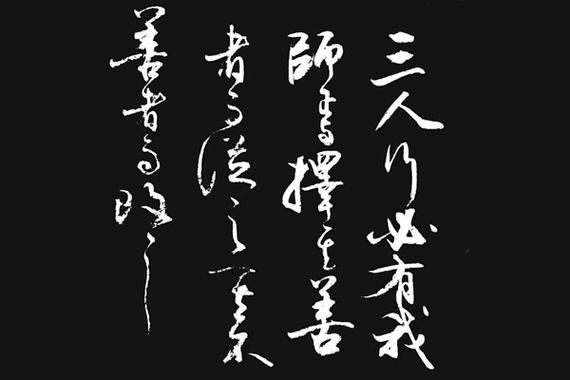 三人行必有我
師焉擇其善
者而從之其不
善者而改之